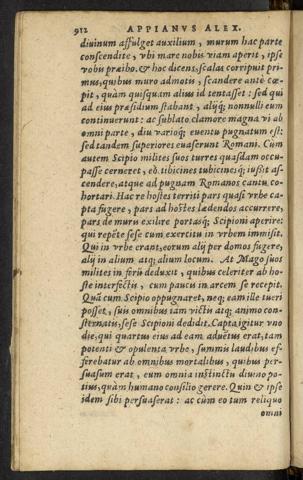 912 APPIANVS ALEX.
diuinum affulget auxilium, murum hac parte
conscendite, vbi mare nobis viam aperit, ipse
vobis præibo. & hoc dicens, scalas corripuit pri-
mus, quibus muro admotis, scandere antè cœ-
pit, quàm quisquam alius id tentasset: sed qui
ad eius præsidium stabant, alijq́; nonnulli eum
continuerunt: ac sublato clamore magna vi ab
omni parte, diu varioq́; euentu pugnatum est:
sed tandem superiores euaserunt Romani. Cùm
autem Scipio milites suos turres quasdam occu-
passe cerneret, eò tibicines tubicinesq́; iußit as-
cendere, atque ad pugnam Romanos cantu co-
hortari. Hac re hostes territi pars quasi vrbe ca-
pta fugere, pars ad hostes lædendos accurrere,
pars de muro exilire portasq́; Scipioni aperire:
qui repẽte sese cum exercitu in vrbem immisit.
Qui in vrbe erant, eorum alij per domos fugere,
alij in alium atq; alium locum. At Mago suos
milites in forũ deduxit, quibus celeriter ab ho-
ste interfectis, cum paucis in arcem se recepit.
Quã cum Scipio oppugnaret, neq; eam ille tueri
posset, suis omnibus iam victis atq; animo con-
sternatis, sese Scipioni dedidit. Capta igitur vno
die, qui quartus eius ad eam aduẽtus erat, tam
potenti & opulenta vrbe, summis laudibus ef-
ferebatur ab omnibus mortalibus, quibus per-
suasum erat, eum omnia instinctu diuino po-
tius, quàm humano consilio gerere. Quin & ipse
idem sibi persuaserat: ac cùm eo tum reliquo
omni